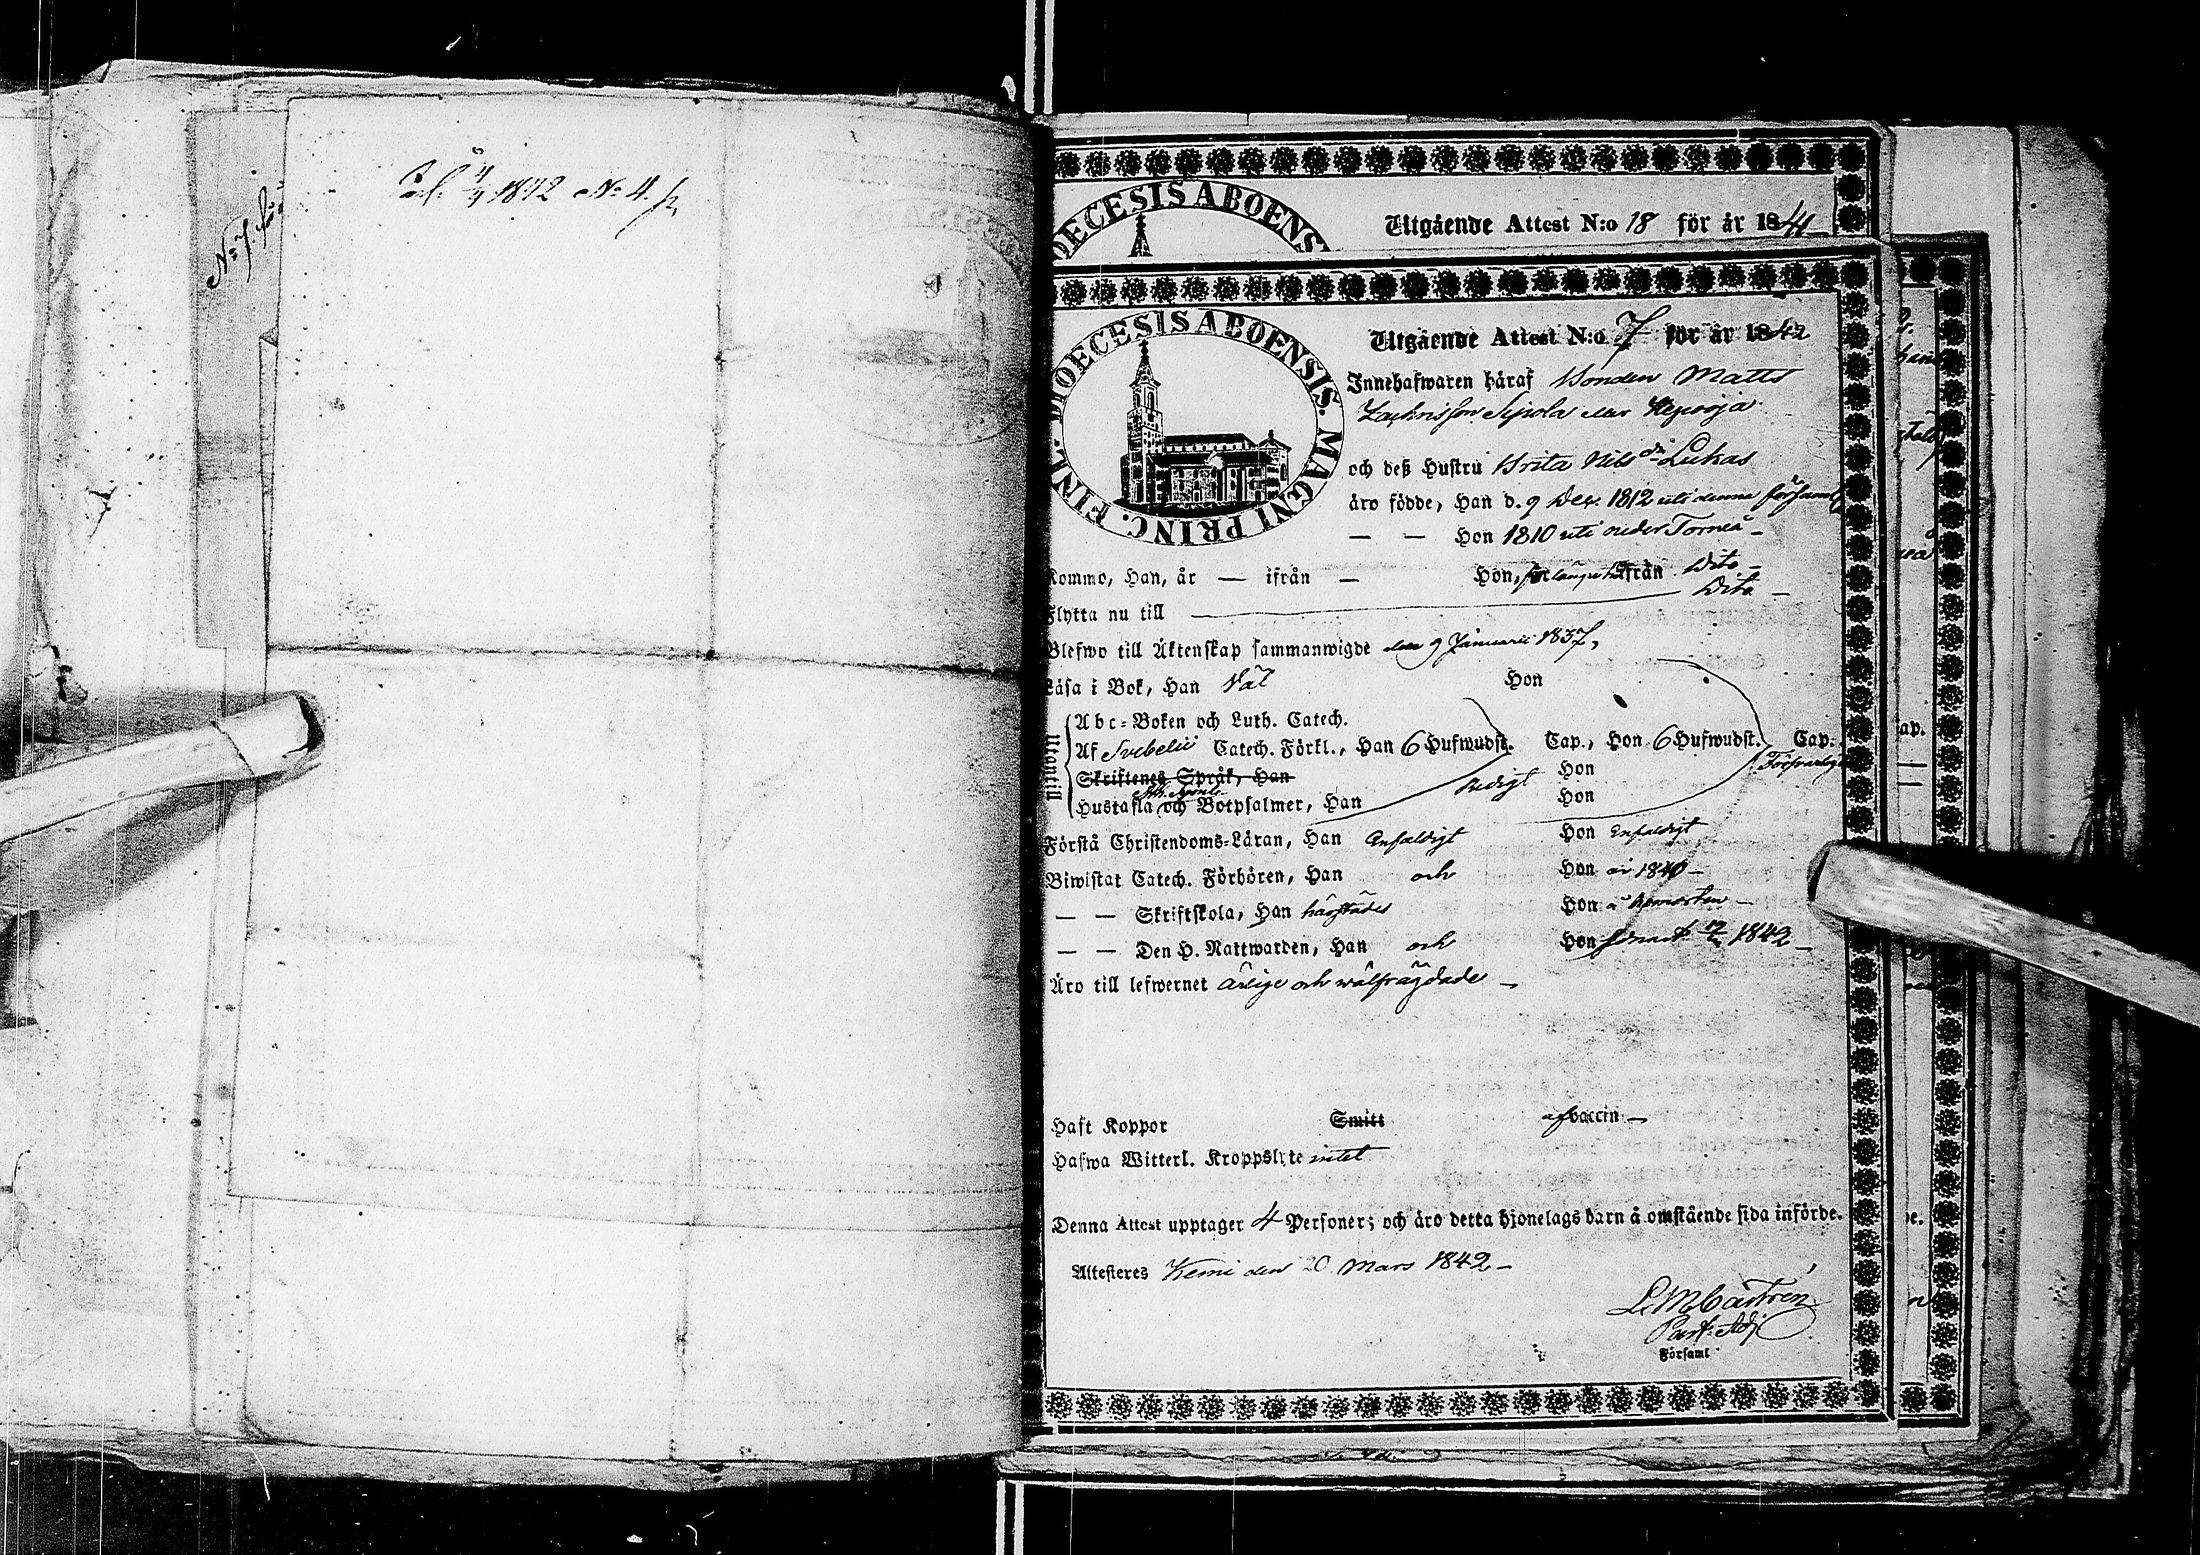 1842 No 4.
No 7 för
DIOECESIS ABOENS
Utgående Attest N:o 18 för år 1841
DIOECESIS ABOENSIS. MAGNI PRINC. FINL.
Utgående Attest N:o 7 för år 1842
Innehafwaren häraf Bonden Matts
Zachrisson Sipola eller Keporja
och deß Hustru Brita Nils dr Lukas
äro födde, Han d. 9 Dec. 1812 uti denna församl
— — Hon 1810 uti neder Torneå —
Kommo, Han, år — ifrån — Hon, för länge ifrån Dito —
Flytta nu till Dito —
Blefwo till Äktenskap sammanwigde den 9 Januarii 1837,
Läsa i Bok, Han Väl Hon
Utantill
Abc-Boken och Luth. Catech.
Af Svebelii Catech. Förkl., Han 6 Hufwudst. Cap., Hon 6 Hufwudst. Cap.
Skriftenes Språk, Han Hon
Hustafla och Botpsalmer, Han Redigt Hon
Förstå Christendoms-Läran, Han Enfaldigt Hon Enfaldigt
Biwistat Catech. Förhören, Han och Hon år 1840 —
— — Skriftskola, Han härstädes Hon å
— — Den H. Nattwarden, Han och Hon 1842 —
Äro till lefwernet ärlige och wälfrägdade —
Haft Koppor Smitt af vaccin —
Hafwa Witterl. Kroppslyte intet
Denna Attest upptager 4 Personer; och äro detta hjonelags barn å omstående sida införde.
Attesteres Kemi den 20 Mars 1842 —
L. M. Castrén
Past. Adj
Församl